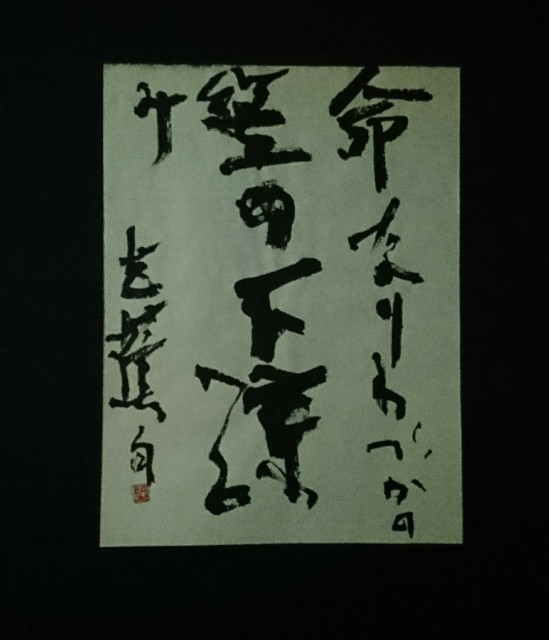 命なりわづかの
笠の下涼
み
芭蕉句